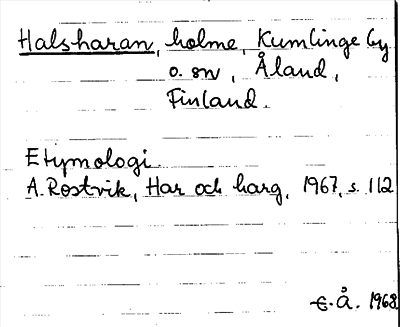 Halsharan, holme, Kumlinge by
o. sn, Åland,
Finland.
Etymologi
A. Rostvik, Har och harg, 1967, s. 112
E. Å. 1968